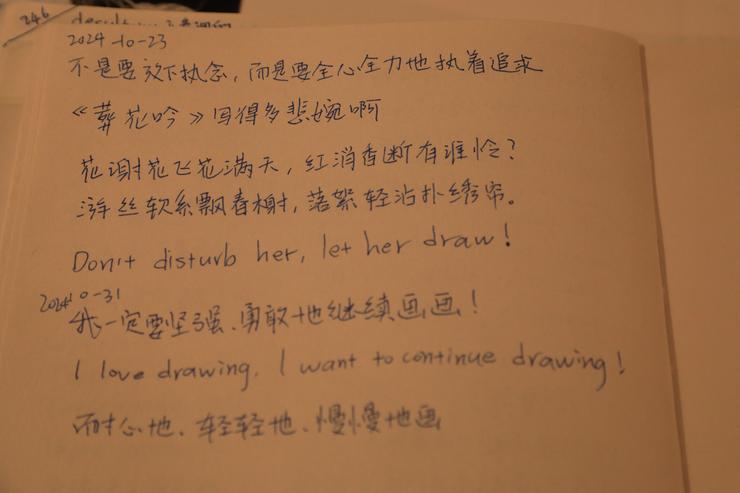 246
2024-10-23
不是要放下执念，而是要全心全力地执着追求
《葬花吟》写得多悲婉啊
花谢花飞花满天，红消香断有谁怜？
游丝软系飘春榭，落絮轻沾扑绣帘。
Don't disturb her, let her draw!
2024-10-31
我一定要坚强、勇敢地继续画画！
I love drawing, I want to continue drawing!
耐心地、轻轻地、慢慢地画